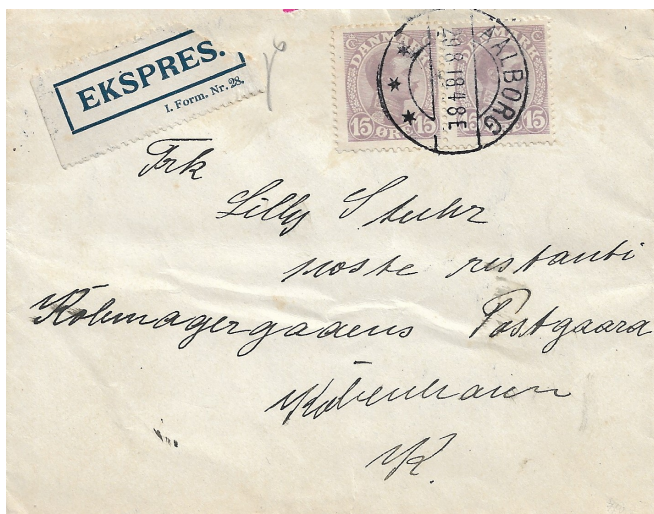 EKSPRES.
I. Form. Nr. 28.
DANMARK DANMARK
15 ØRE 15 15 ØRE 15
AALBORG
29.8.18.4-8E
Frk
Lilly Stuhr
poste restanti
Købmagergadens Postgaard
København
K.